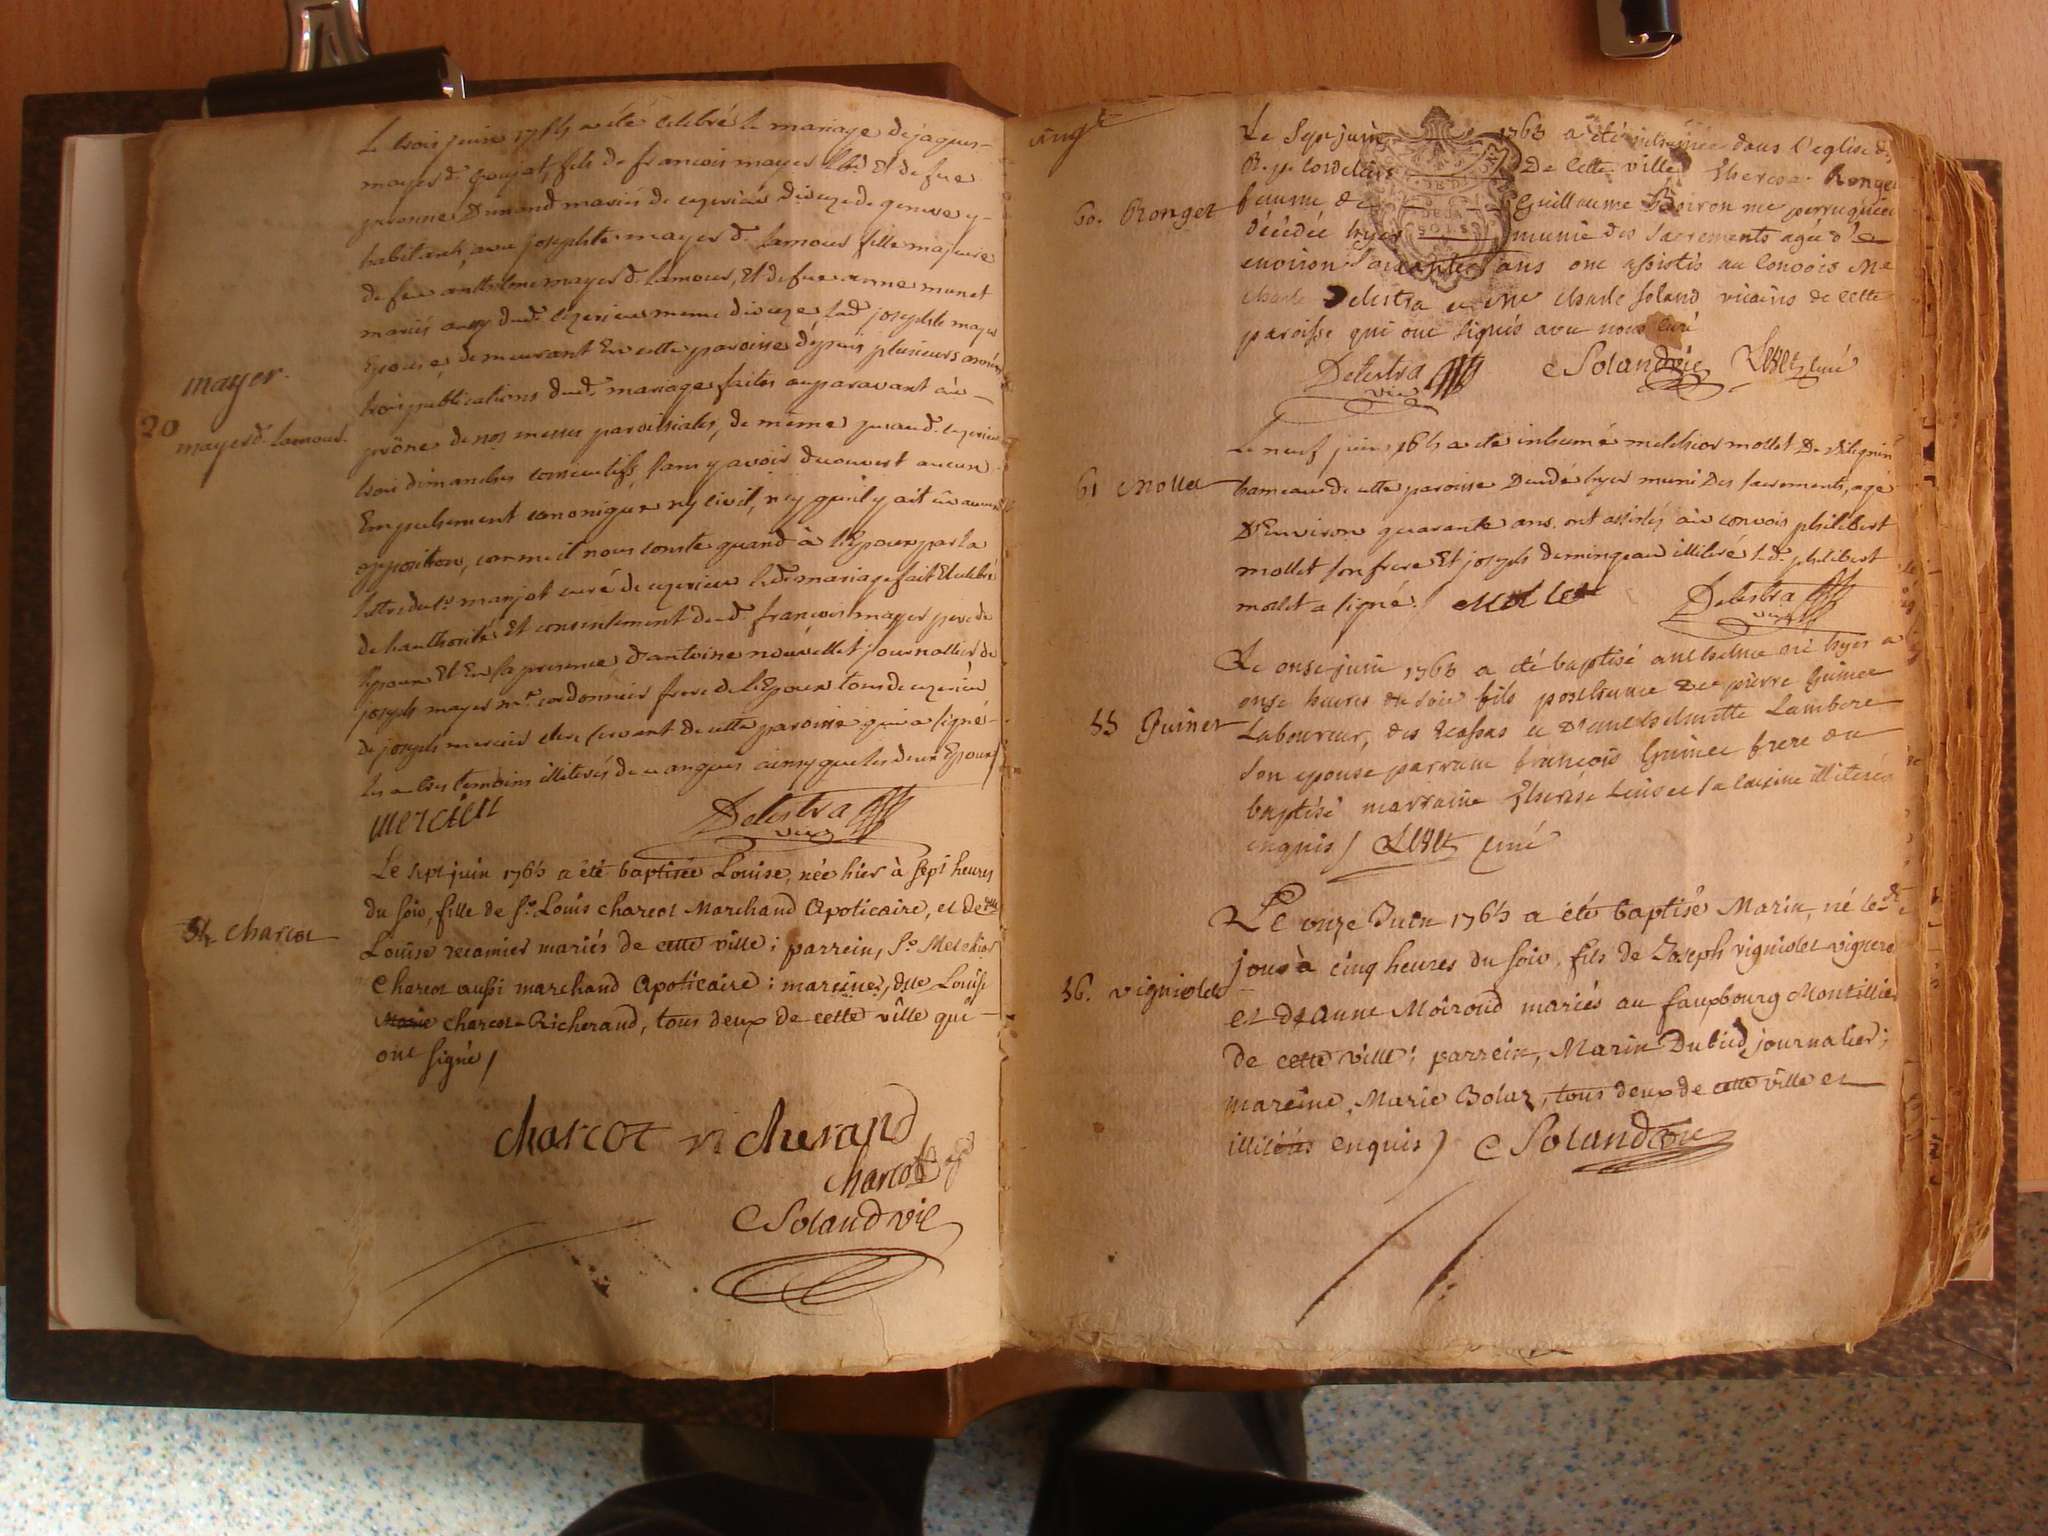 Le trois juin 1765 a été celebré le mariage de jaques
mayer d. goujat, fils de francois mayer et de fue
pernone Dunand mariés de ceyzerieu dioceze de geneve y
habitant, avec josephte mayer d. lamour fille majeure
de feu anthelme mayer d. lamour, Et de fue anne munet
mariés aussy dud. ceyzerieu meme dioceze lad. josephte mayer
Epouse demeurant En cette paroisse depuis plusieurs années
trois publications dud. mariage faites auparavant au
mayer.
20
prône de nos messes paroissiales, de même qu'aud. ceyzerieu
mayer d. lamour.
trois dimanches consecutifs, sans y avoir decouvert aucun
Empechement canonique ny civil, ny qu'il y ait eu aucune
opposition, comme il nous conste quand à l'Epoux par la
lettre du sr. marjot curé de ceyzerieu led. mariage fait Et celebré
de l'authorité Et consentement dud. francois mayer pere de
l'epoux Et En sa presence, d'antoine nouvellet journallier de
joseph mayer me. cordonnier frere de l'Epoux tous de ceyzerieu
de joseph mercier clerc servant de cette paroisse qui a signé
les autres temoins illiterés de ce enquis ainsy que les deux Epoux
mercier
Delestra
vic.
Le sept juin 1765 a été baptisée Louise, née hier à sept heures
du soir, fille de Sr. Louis charcot Marchand Apoticaire, et de dlle
54 charcot
Louise recamier mariés de cette ville ; parrein, Sr. Melchior
Charcot aussi marchand Apoticaire ; mareine, dlle Louise
Marie charcot Richerand, tous deux de cette ville qui
ont signé /
charcot richerand
charcot
Soland vic
vingt
Le Sept juin 1765 a été inhumée dans l'eglise des
R. p. Cordeliers De Cette ville Therese Ronget
60. Ronget
femme de Guillaume Boiron me perruquier
décédée hyer munie des sacrements agée d'
environ soixante ans ont assistés au Convois Me
charle Delestra et Me Charle Soland vicaires de cette
paroisse qui ont signés avec nous curé
Delestra
vic
Soland vic
curé
Le neuf juin 1765 a été inhumé melchior mollet De
61 Mollet
hameau de cette paroisse Decedé hyer muni Des sacrements, agé
D'Environ quarante ans, ont assistés au convois philibert
mollet son frere Et joseph demingeau illiteré led. philibert
mollet a signé. Mollet
Delestra
vic
Le onze juin 1765 a été baptisé anthelme né hyer a
onze heures du soir fils posthume de pierre Guinet
55 Guinet
Laboureur, des Ecassas et d'anthelmette Lambert
son epouse parrain francois Guinet frere du
baptisé marraine Therese Guinet sa cousine illiterés
enquis / curé
Le onze Juin 1765 a été baptisé Marin, né led.
jour à cinq heures du soir, fils de Joseph vigniolet vigneron
56. vigniolet
et de anne Moiroud mariés au fauxbourg Montillier
de cette ville ; parrein, Marin Dubid journalier ;
mareine, Marie Bolar, tous deux de cette ville et
illiterés enquis / Soland vic